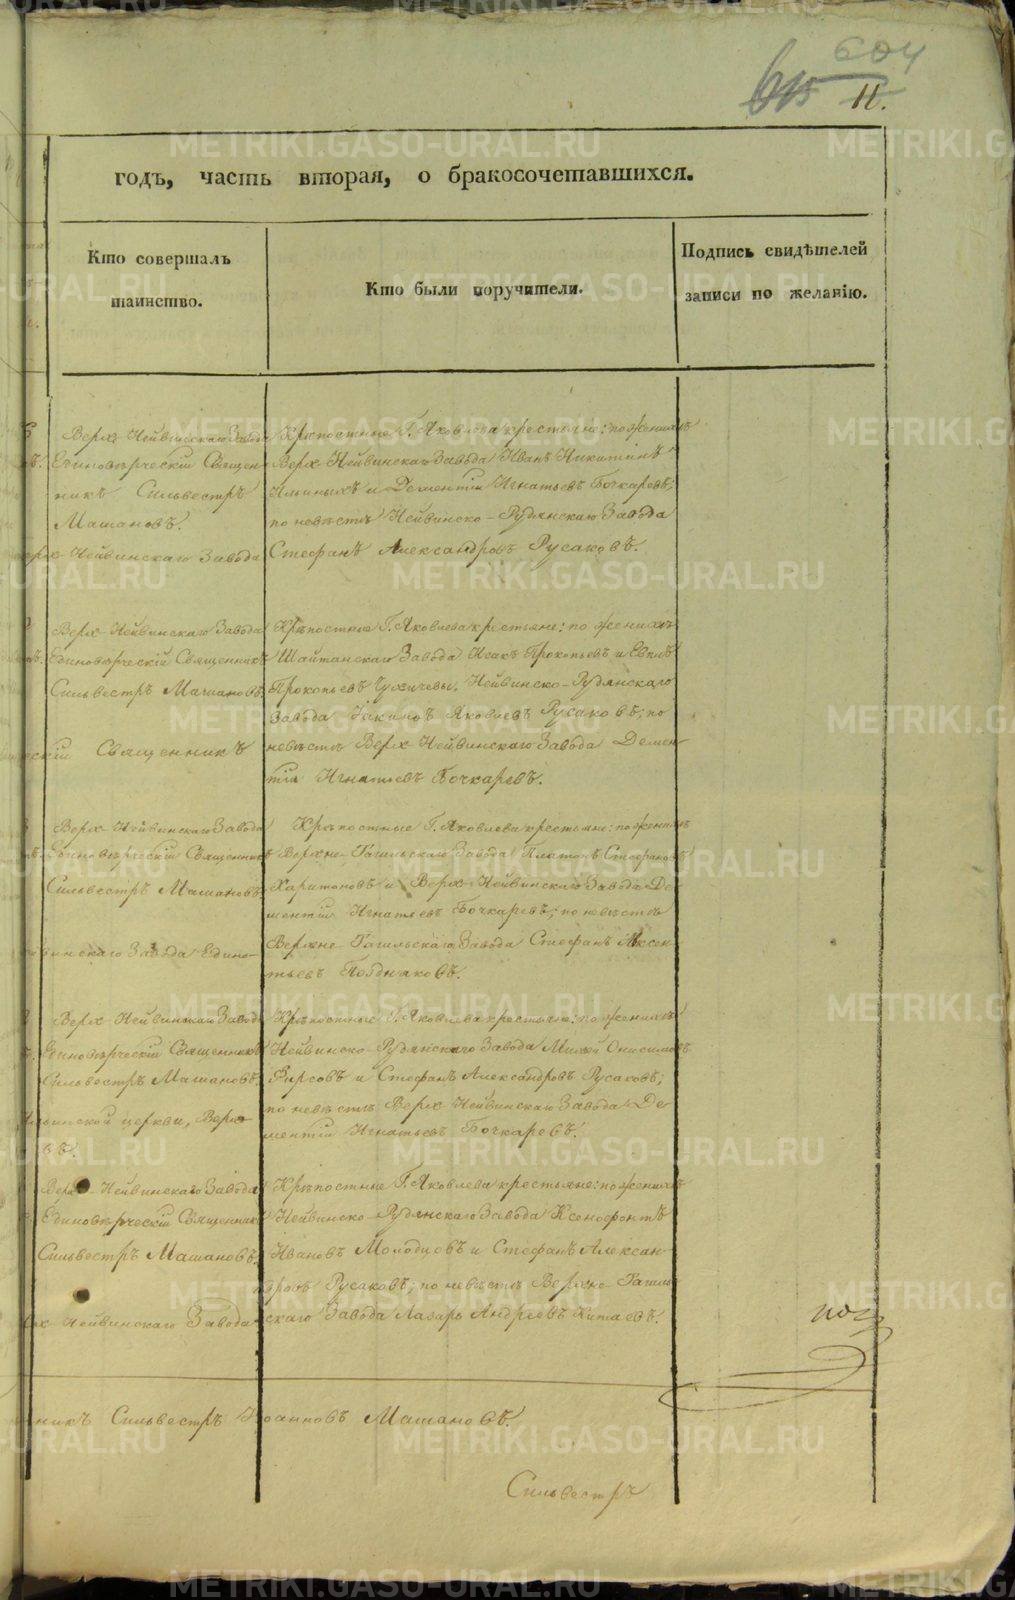 604
615 11.
годъ, часть вторая, о бракосочетавшихся.
Кто совершалъ
таинство.
Кто были поручители.
Подпись свидѣтелей
записи по желанію.
Верх-Нейвинскаго Завода
Единовѣрческій Священ-
никъ Сильвестръ
Машановъ.
Нейвинскаго Завода
Крѣпостные Г. Яковлева крестьяне: по женихѣ
Верх-Нейвинскаго Завода Иванъ Никитинъ
Ильиныхъ и Дементій Игнатьевъ Бочкаревъ;
по невѣстѣ Нейвинско-Рудянскаго Завода
Стефанъ Александровъ Русаковъ.
Верх-Нейвинскаго Завода
Единовѣрческій Священникъ
Сильвестръ Машановъ.
Священникъ
Крѣпостные Г. Яковлева крестьяне: по женихѣ
Шайтанскаго Завода Исакъ Прокопьевъ и
Прокопьевъ Нейвинско-Рудянскаго
Завода Яковлевъ Русаковъ; по
невѣстѣ Верх-Нейвинскаго Завода Демен-
тій Игнатьевъ Бочкаревъ.
Верх-Нейвинскаго Завода
Единовѣрческій Священникъ
Сильвестръ Машановъ.
Завода Едино-
Крѣпостные Г. Яковлева крестьяне: по женихѣ
Верхне-Тагильскаго Завода Платонъ Стефановъ
Харитоновъ и Верх-Нейвинскаго Завода Де-
ментій Игнатьевъ Бочкаревъ; по невѣстѣ
Верхне-Тагильскаго Завода Стефанъ Аксен-
тьевъ Поздняковъ.
Верх-Нейвинскаго Завода
Единовѣрческій Священникъ
Сильвестръ Машановъ.
церкви, Верх-
въ.
Крѣпостные Г. Яковлева крестьяне: по женихѣ
Нейвинско-Рудянскаго Завода Онисимовъ
Фирсовъ и Стефанъ Александровъ Русаковъ;
по невѣстѣ Верх-Нейвинскаго Завода Де-
ментій Игнатьевъ Бочкаревъ.
Верх-Нейвинскаго Завода
Единовѣрческій Священникъ
Сильвестръ Машановъ.
Нейвинскаго Завода
Крѣпостные Г. Яковлева крестьяне: по женихѣ
Нейвинско-Рудянскаго Завода Ксенофонтъ
Ивановъ Молодцовъ и Стефанъ Алексан-
дровъ Русаковъ; по невѣстѣ Верхне-Тагиль-
скаго Завода Лазарь Андреевъ Китаевъ.
никъ Сильвестръ Іоанновъ Машановъ.
Сильвестръ
METRIKI.GASO-URAL.RU